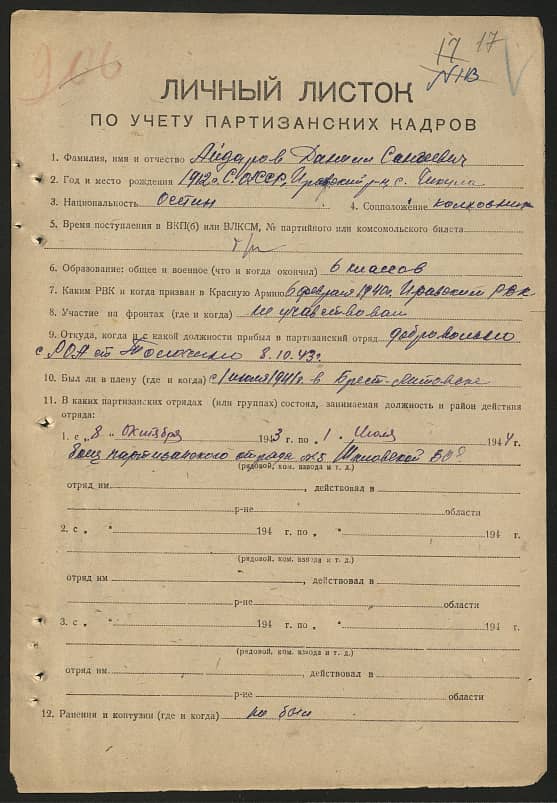 906
17 17
ЛИЧНЫЙ ЛИСТОК
ПО УЧЕТУ ПАРТИЗАНСКИХ КАДРОВ
1. Фамилия, имя и отчество Айдаров Даниил
2. Год и место рождения 1912 г. С.ОССР, Ирафский р-н, с. Чикола
3. Национальность Осетин 4. Соцположение колхозник
5. Время поступления в ВКП(б) или ВЛКСМ, № партийного или комсомольского билета
б/п
6. Образование: общее и военное (что и когда окончил) 6 классов
7. Каким РВК и когда призван в Красную Армию 6 февраля 1940г. Ирафским РВК
8. Участие на фронтах (где и когда) не участвовал
9. Откуда, когда и с какой должности прибыл в партизанский отряд добровольно
с РОА от Толочино 8.10.43г.
10. Был ли в плену (где и когда) с 1941г. в Брест-Литовске
11. В каких партизанских отрядах (или группах) состоял, занимаемая должность и район действия
отряда:
1. с „8 „ Октября 1943 г. по „1 „ Июля 1944 г.
боец партизанского отряда №5 Шкловской
(рядовой, ком. взвода и т. д.)
отряд им , действовал в
р-не области
2. с „ “ 194 г. по „ “ 194 г.
(рядовой, ком. взвода и т. д.)
отряд им , действовал в
р-не области
3. с „ “ 194 г. по „ “ 194 г.
(рядовой, ком. взвода и т. д.)
отряд им , действовал в
р-не области
12. Ранения и контузии (где и когда) не был